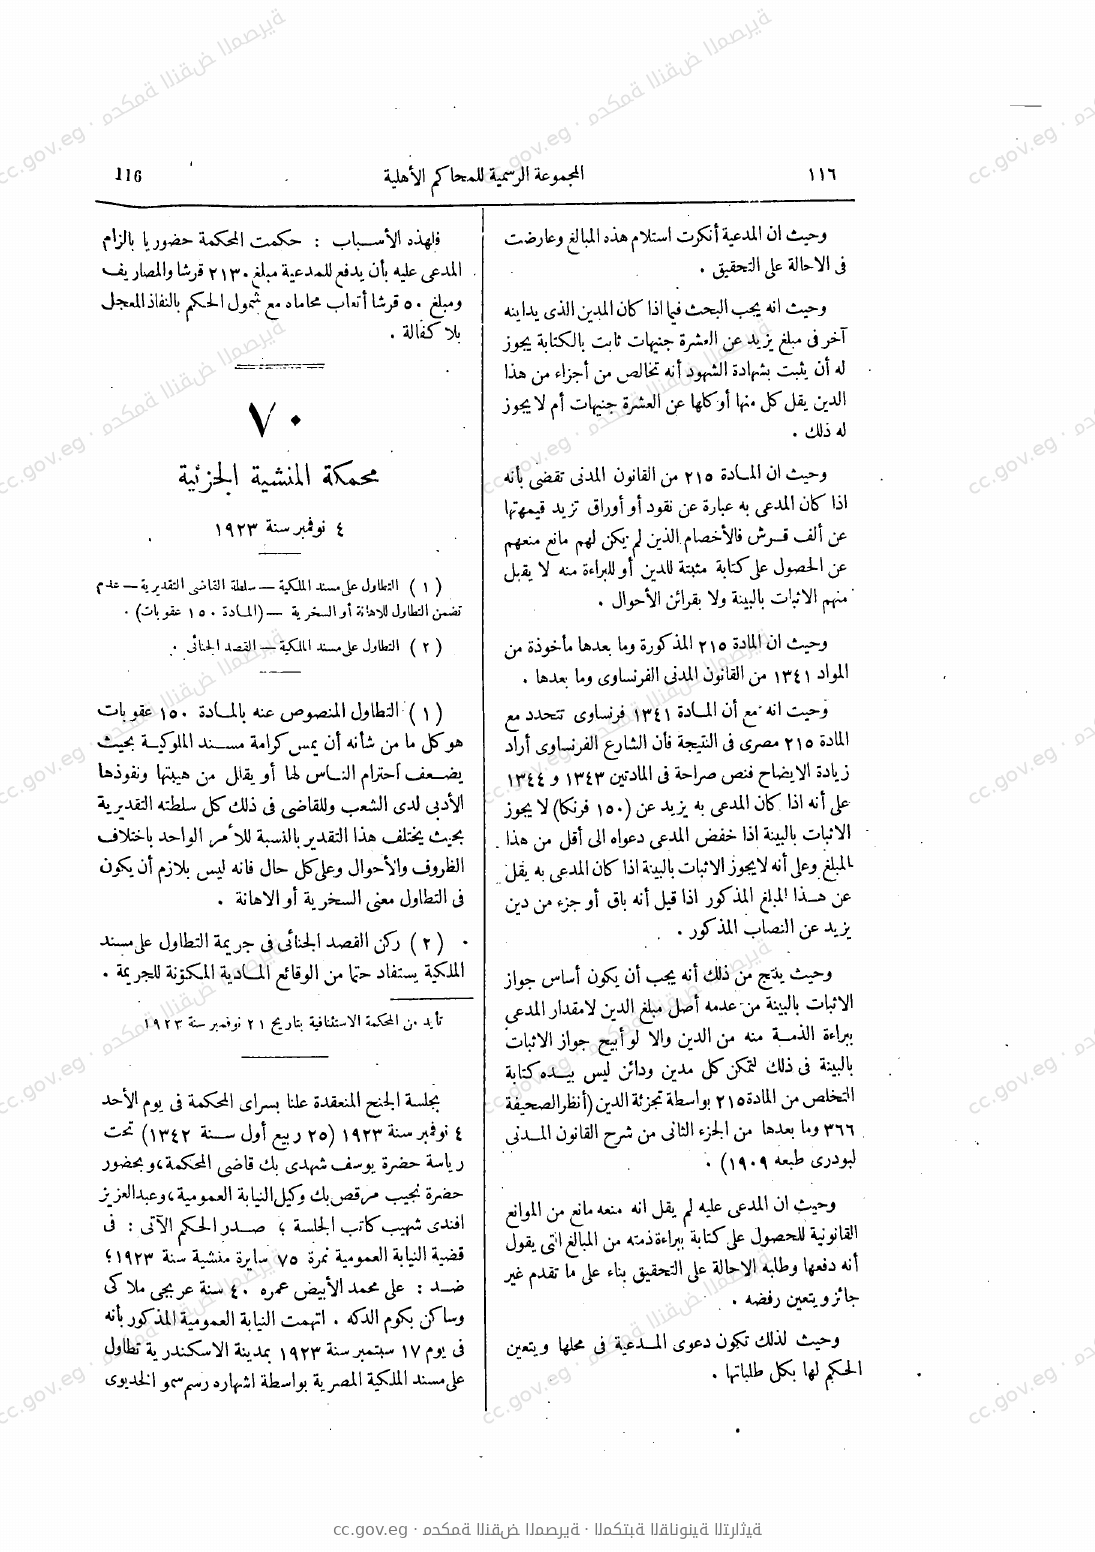 ١١٦
المجموعة الرسمية للمحاكم الأهلية
116
وحيث ان المدعية أنكرت استلام هذه المبالغ وعارضت
فى الاحالة على التحقيق .
وحيث انه يجب البحث فيما اذا كان المدين الذى يداينه
آخر فى مبلغ يزيد عن العشرة جنيهات ثابت بالكتابة يجوز
له أن يثبت بشهادة الشهود أنه تخالص من أجزاء من هذا
الدين يقل كل منها أو كلها عن العشرة جنيهات أم لا يجوز
له ذلك .
وحيث ان المادة ٢١٥ من القانون المدنى تقضى بأنه
اذا كان المدعى به عبارة عن نقود أو أوراق تزيد قيمتها
عن ألف قرش فالأخصام الذين لم يكن لهم مانع منعهم
عن الحصول على كتابة مثبتة للدين أو للبراءة منه لا يقبل
منهم الاثبات بالبينة ولا بقرائن الأحوال .
وحيث ان المادة ٢١٥ المذكورة وما بعدها مأخوذة من
المواد ١٣٤١ من القانون المدنى الفرنساوى وما بعدها .
وحيث انه مع أن المادة ١٣٤١ فرنساوى تتحدد مع
المادة ٢١٥ مصرى فى النتيجة فان الشارع الفرنساوى أراد
زيادة الايضاح فنص صراحة فى المادتين ١٣٤٣ و ١٣٤٤
على أنه اذا كان المدعى به يزيد عن (١٥٠ فرنكا) لا يجوز
الاثبات بالبينة اذا خفض المدعى دعواه الى أقل من هذا
المبلغ وعلى أنه لايجوز الاثبات بالبينة اذا كان المدعى به يقل
عن هذا المبلغ المذكور اذا قيل أنه باق أو جزء من دين
يزيد عن النصاب المذكور .
وحيث ينتج من ذلك أنه يجب أن يكون أساس جواز
الاثبات بالبينة من عدمه أصل مبلغ الدين لا مقدار المدعى
ببراءة الذمة منه من الدين والا لو أبيح جواز الاثبات
بالبينة فى ذلك لتمكن كل مدين ودائن ليس بيده كتابة
التخلص من المادة ٢١٥ بواسطة تجزئة الدين (أنظر الصحيفة
٣٦٦ وما بعدها من الجزء الثانى من شرح القانون المدنى
لبودرى طبعه ١٩٠٩) .
وحيث ان المدعى عليه لم يقل انه منعه مانع من الموانع
القانونية للحصول على كتابة ببراءة ذمته من المبالغ التى يقول
أنه دفعها وطلبه الاحالة على التحقيق بناء على ما تقدم غير
جائز ويتعين رفضه .
وحيث لذلك تكون دعوى المدعية فى محلها ويتعين
الحكم لها بكل طلباتها .
فلهذه الأسباب : حكمت المحكمة حضوريا بالزام
المدعى عليه بأن يدفع للمدعية مبلغ ٢١٣٠ قرشا والمصاريف
ومبلغ ٥٠ قرشا أتعاب محاماه مع شمول الحكم بالنفاذ المعجل
بلا كفالة .
٧٠
محمكة المنشية الجزئية
٤ نوفمبر سنة ١٩٢٣
(١) التطاول على مسند الملكية – سلطة القاضى التقديرية – عدم
تضمن التطاول للاهانة أو السخرية – (المادة ١٥٠ عقوبات) .
(٢) التطاول على مسند الملكية – القصد الجنائى .
(١) التطاول المنصوص عنه بالمادة ١٥٠ عقوبات
هو كل ما من شأنه أن يمس كرامة مسند الملوكية بحيث
يضعف احترام الناس لها أو يقلل من هيبتها ونفوذها
الأدبى لدى الشعب وللقاضى فى ذلك كل سلطته التقديرية
بحيث يختلف هذا التقدير بالنسبة للأمر الواحد باختلاف
الظروف والأحوال وعلى كل حال فانه ليس بلازم أن يكون
فى التطاول معنى السخرية أو الاهانة .
(٢) ركن القصد الجنائى فى جريمة التطاول على مسند
الملكية يستفاد حتما من الوقائع المادية المكونة للجريمة .
تأيد من المحكمة الاستئنافية بتاريخ ٢١ نوفمبر سنة ١٩٢٣
بجلسة الجنح المنعقدة علنا بسراى المحكمة فى يوم الأحد
٤ نوفمبر سنة ١٩٢٣ (٢٥ ربيع أول سنة ١٣٤٢) تحت
رياسة حضرة يوسف شهدى بك قاضى المحكمة، وبحضور
حضرة نجيب مرقص بك وكيل النيابة العمومية، وعبدالعزيز
افندى شهيب كاتب الجلسة ؛ صدر الحكم الآتى : فى
قضية النيابة العمومية نمرة ٧٥ سايرة منشية سنة ١٩٢٣؛
ضد : على محمد الأبيض عمره ٤٠ سنة عربجى ملاكى
وساكن بكوم الدكه . اتهمت النيابة العمومية المذكور بأنه
فى يوم ١٧ سبتمبر سنة ١٩٢٣ بمدينة الاسكندرية تطاول
على مسند الملكية المصرية بواسطة اشهاره رسم سمو الخديوى
cc.gov.eg · محكمة النقض المصرية · المكتبة القانونية التراثية